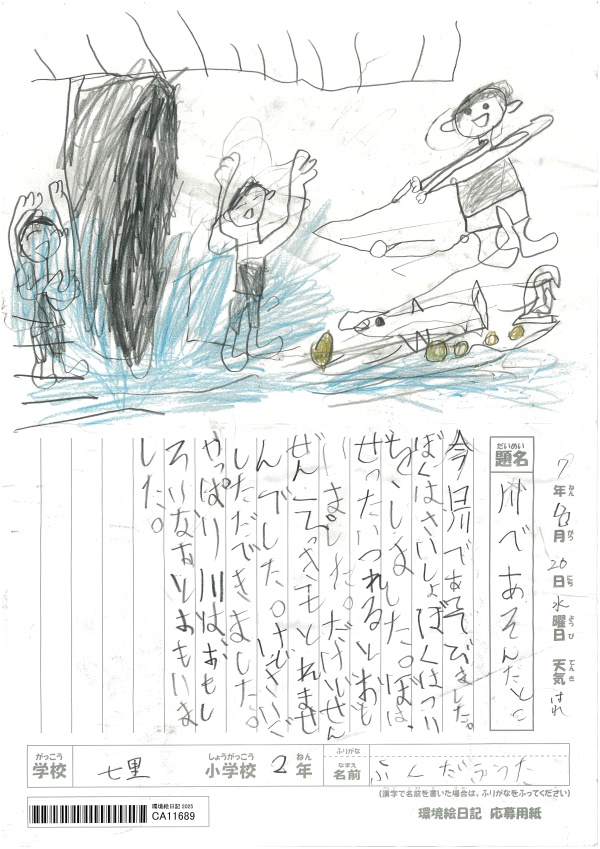 7年8月20日水曜日 天気はれ
ねん がつ にち ようび てんき
だいめい
題名 川であそんだこと
今日川で遊びました。
ぼくはさいしょぼくはつり
を、しました。ぼくは、
ぜったいつれるとおも
いました。だけどぜん
ぜん もとれませ
んでした。けどさいご
できました。
やっぱり川はおもし
ろいなあとおもいま
した。
がっこう しょうがっこう ねん ふりがな なまえ
学校 七里 小学校 2年 名前 ふくだ
(漢字で名前を書いた場合は、ふりがなをふってください)
環境絵日記 応募用紙
環境絵日記 2025
CA11689